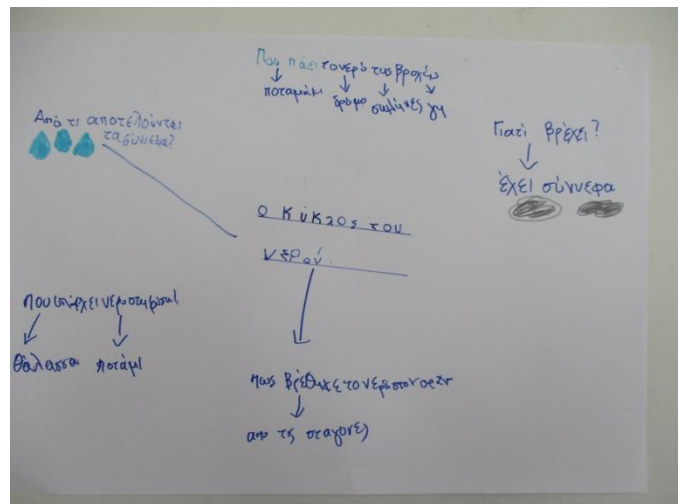 Που πάει το νερό της βροχής
ποταμάκι δρόμο σωλήνες γη
Από τι αποτελούνται
τα σύννεφα?
Γιατί βρέχει?
έχει σύννεφα
Ο κύκλος του
νερού
που υπάρχει νερο στη φύση
θάλασσα ποτάμι
πως βρέθηκε το νερο στον
απο τις σταγονες